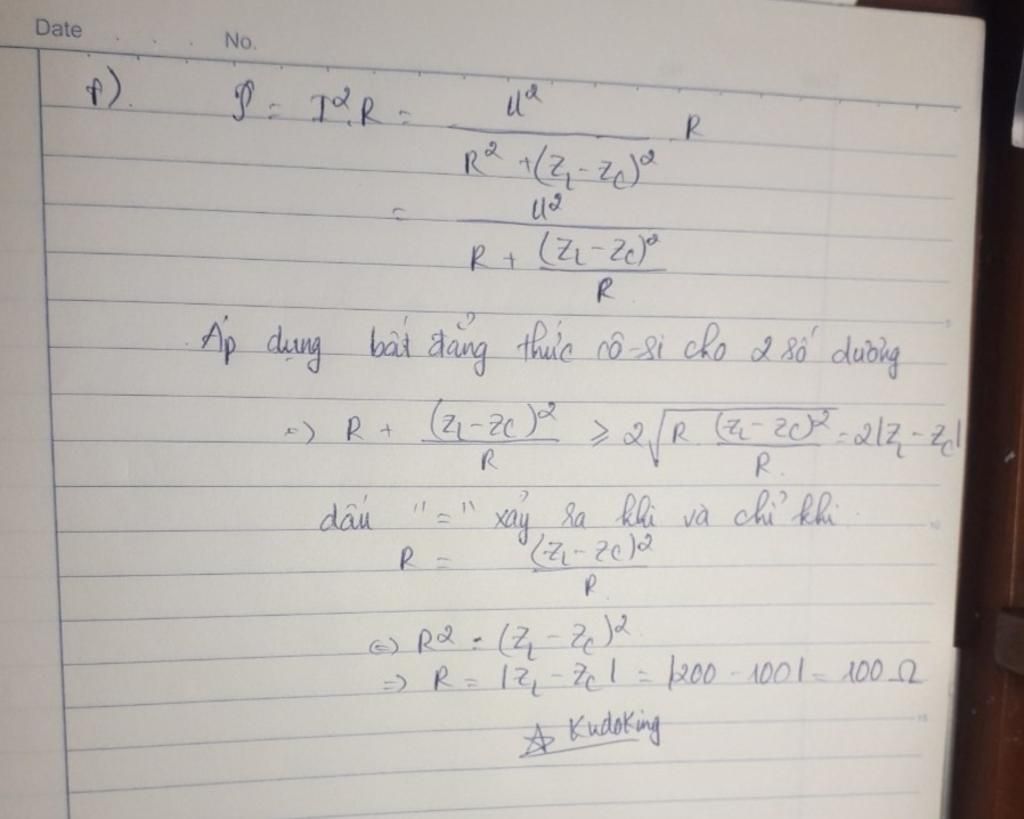 Date . . . . No.
f). P = I². R = U² / (R² + (Z_L - Z_C)²) R
= U² / (R + (Z_L - Z_C)² / R)
Áp dụng bất đẳng thức cô-si cho 2 số dương
=> R + (Z_L - Z_C)² / R ≥ 2√(R (Z_L - Z_C)² / R) = 2|Z_L - Z_C|
dấu "=" xảy ra khi và chỉ khi
R = (Z_L - Z_C)² / R
<=> R² = (Z_L - Z_C)²
=> R = |Z_L - Z_C| = |200 - 100| = 100 Ω
☆ KudoKing